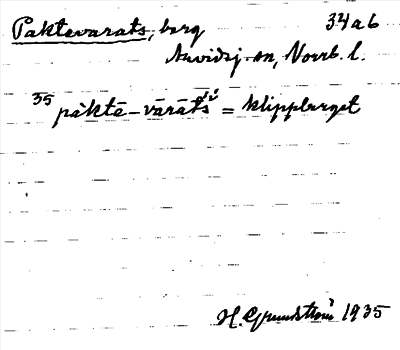 Paktevarats, berg 34 a b
Arvidsj. sn, Norrb. l.
35 påktē-vārāts = klippberget
H. Grundström 1935